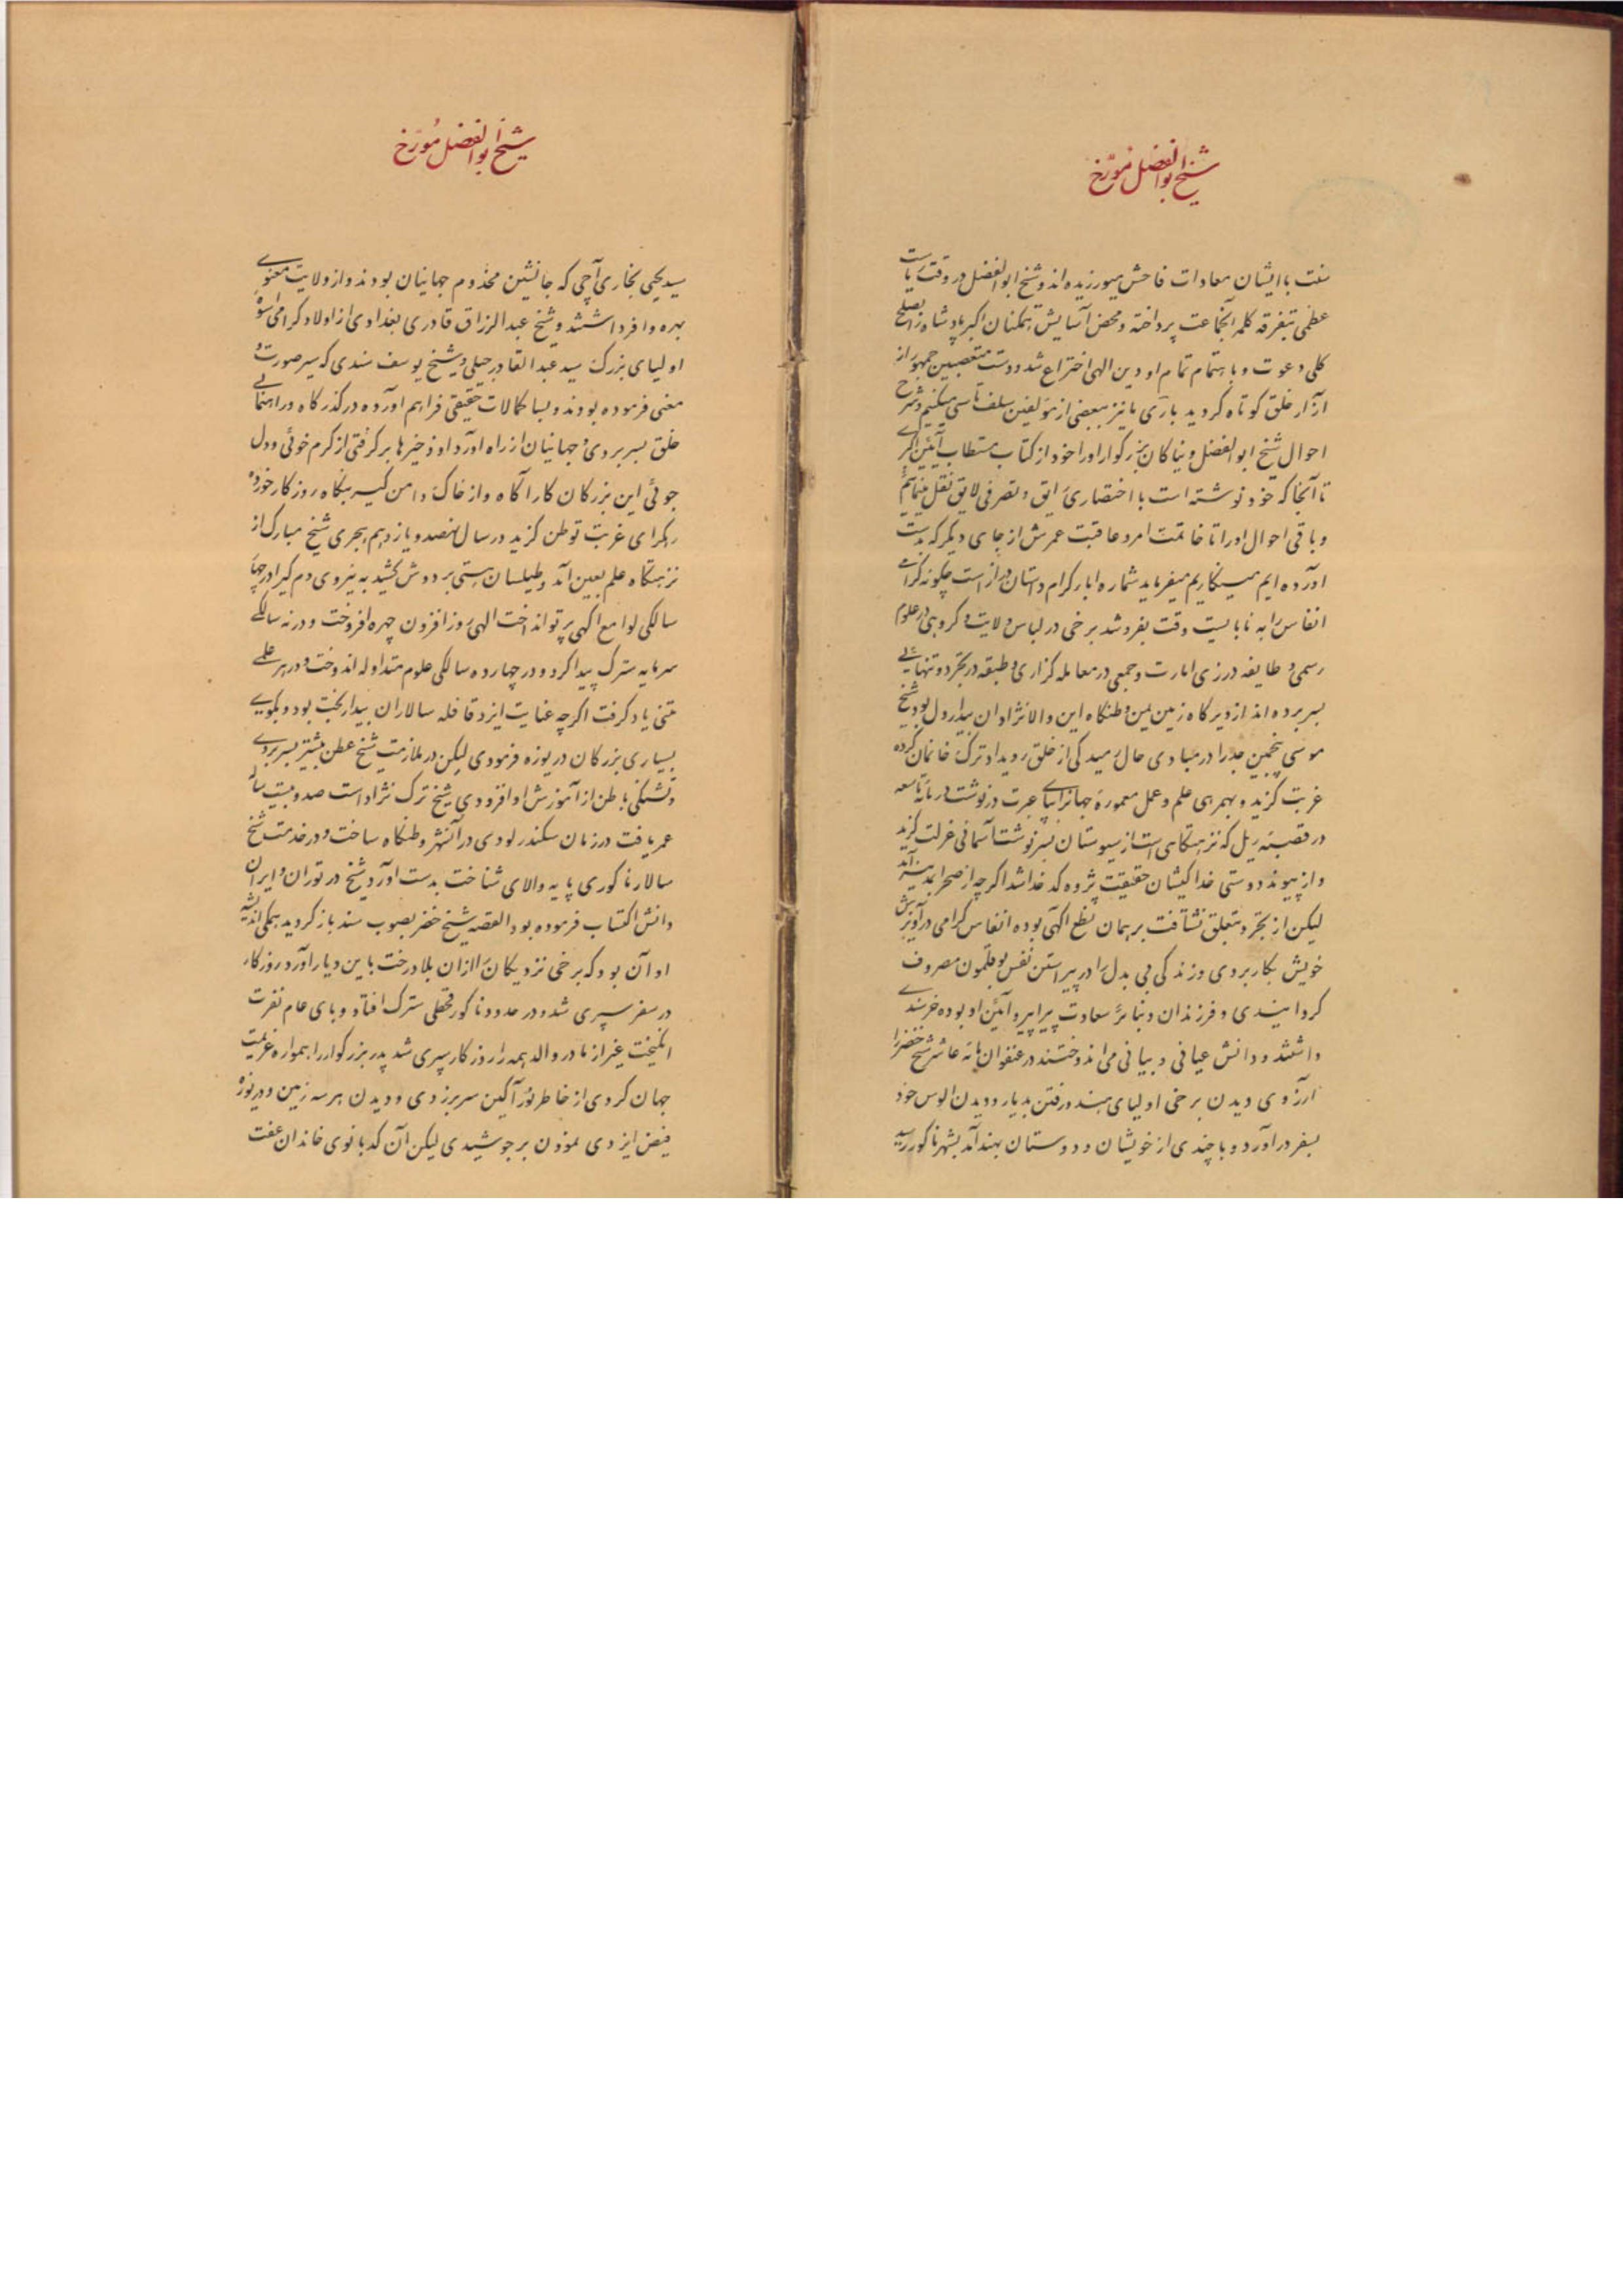 شیخ ابوالفضل مورّخ
سنت با ایشان معادات فاحش میورزیده اند و شیخ ابوالفضل در وقت ریاست
عظمی بتفرقه کلمه آنجماعت پرداخته و محض آسایش همکنان اکبر پادشاه را بصلح
کلی دعوت و باهتمام تمام او دین الهی اختراع شد و دست متعصبین جمهور از
آزار خلق کوتاه کردید باری ما نیز ببعضی از مؤلفین سلف تاسی میکنیم و شرح
احوال شیخ ابوالفضل و نیاکان بزرکوار او را خود از کتاب مستطاب آئین اکبری
تا آنجا که خود نوشته است با اختصاری رایق و تصرفی لایق نقل مینمائیم
و باقی احوال او را تا خاتمت امر و عاقبت عمرش از جای دیکر که بدست
آورده ایم مینکاریم میفرماید شماره اباء کرام داستان دراز است چکونه کرامی
انفاس را به نابایست وقت بفروشد برخی در لباس ولایت و کروهی در علوم
رسمی و طایفه در زی امارت و جمعی در معامله کزاری و طبقه در تجرد و تنهائی
بسر برده اند از دیر کاه زمین یمن وطنکاه این والانژادان بیدار دل بود شیخ
موسی پنجمین جد را در مبادی حال رمیدکی از خلق رویداد ترک خانمان کرده
غربت کزید و بهمرهی علم و عمل معموره جهانرا بپای عبرت درنوشت در مائه تاسعه
در قصبه ریل که نزهتکاهی است از سیوستان بسرنوشت آسمانی عزلت کزید
و از پیوند دوستی خداکیشان حقیقت پژوه کدخدا شد اکرچه از صحرا بمدینه آمد
لیکن از تجرد بتعلق نشتافت بر همان نطع اکهی بوده انفاس کرامی در آویزش
خویش بکار بردی و زندکی بی بدل را در پیراستن نفس بوقلمون مصروف
کردانیدی و فرزندان و نبائر سعادت پیرا پیرو آئین او بوده خرسندی
داشتند و دانش عیانی و بیانی می اندوختند در عنفوان مائه عاشر شیخ خضر را
آرزوی دیدن برخی اولیای هند و رفتن بدیار و دیدن الوس خود
بسفر درآورد و با چندی از خویشان و دوستان بهند آمد بشهر ناکور رسید
شیخ ابوالفضل مُورّخ
سید یحیی بخاری آچی که جانشین مخدوم جهانیان بودند و از ولایت معنوی
بهره وافر داشتند و شیخ عبدالرزاق قادری بغدادی از اولاد کرامی اسوه
اولیای بزرک سید عبدالقادر جیلی و شیخ یوسف سندی که سیر صورت و
معنی فرموده بودند و بسا کمالات حقیقی فراهم آورده درکذرکاه راهنمائی
خلق بسر بردی و جهانیان از راه آورد او ذخیرها برکرفتی از کرم خوئی و دل
جوئی این بزرکان کار آکاه و از خاک دامن کیر بنکاه روزکار خورده
رهکرای غربت توطن کزید در سال نهصد و یازدهم هجری شیخ مبارک از
نزهتکاه علم بعین آمد و طیلسان هستی بر دوش کشید به نیروی دم کیرا در چهار
سالکی لوامع اکهی پرتو انداخت الهی روز افزون چهره افروخت و در نه سالکی
سرمایه سترک پیدا کرد و در چهارده سالکی علوم متداوله اندوخت و در هر علمی
متنی یاد کرفت اکرچه عنایت ایزد قافله سالاران بیدار بخت بود و بکوی
بسیاری بزرکان دریوزه فرمودی لیکن در ملازمت شیخ عطن بیشتر بسر بردی
و تشنکی باطن از آموزش او افزودی شیخ ترک نژاد است صد و بیست ساله
عمر یافت در زمان سکندر لودی در آنشهر وطنکاه ساخت و در خدمت شیخ
سالار ناکوری پایه والای شناخت بدست آورد و شیخ در توران و ایران
دانش اکتساب فرموده بود القصه شیخ خضر بصوب سند باز کردید همکی اندیشه
او آن بود که برخی نزدیکان را از آن بلاد رخت باین دیار آورد روزکار
در سفر سپری شد و در حدود ناکور قحطی سترک افتاد و وبای عام نفرت
انکیخت غیر از مادر والد همه را روزکار سپری شد پدر بزرکوار را همواره عزیمت
جهان کردی از خاطر نور آکین سر برزدی و دیدن هر سرزمین و دریوزه
فیض ایزدی نمودن برجوشیدی لیکن آن کدبانوی خاندان عفت